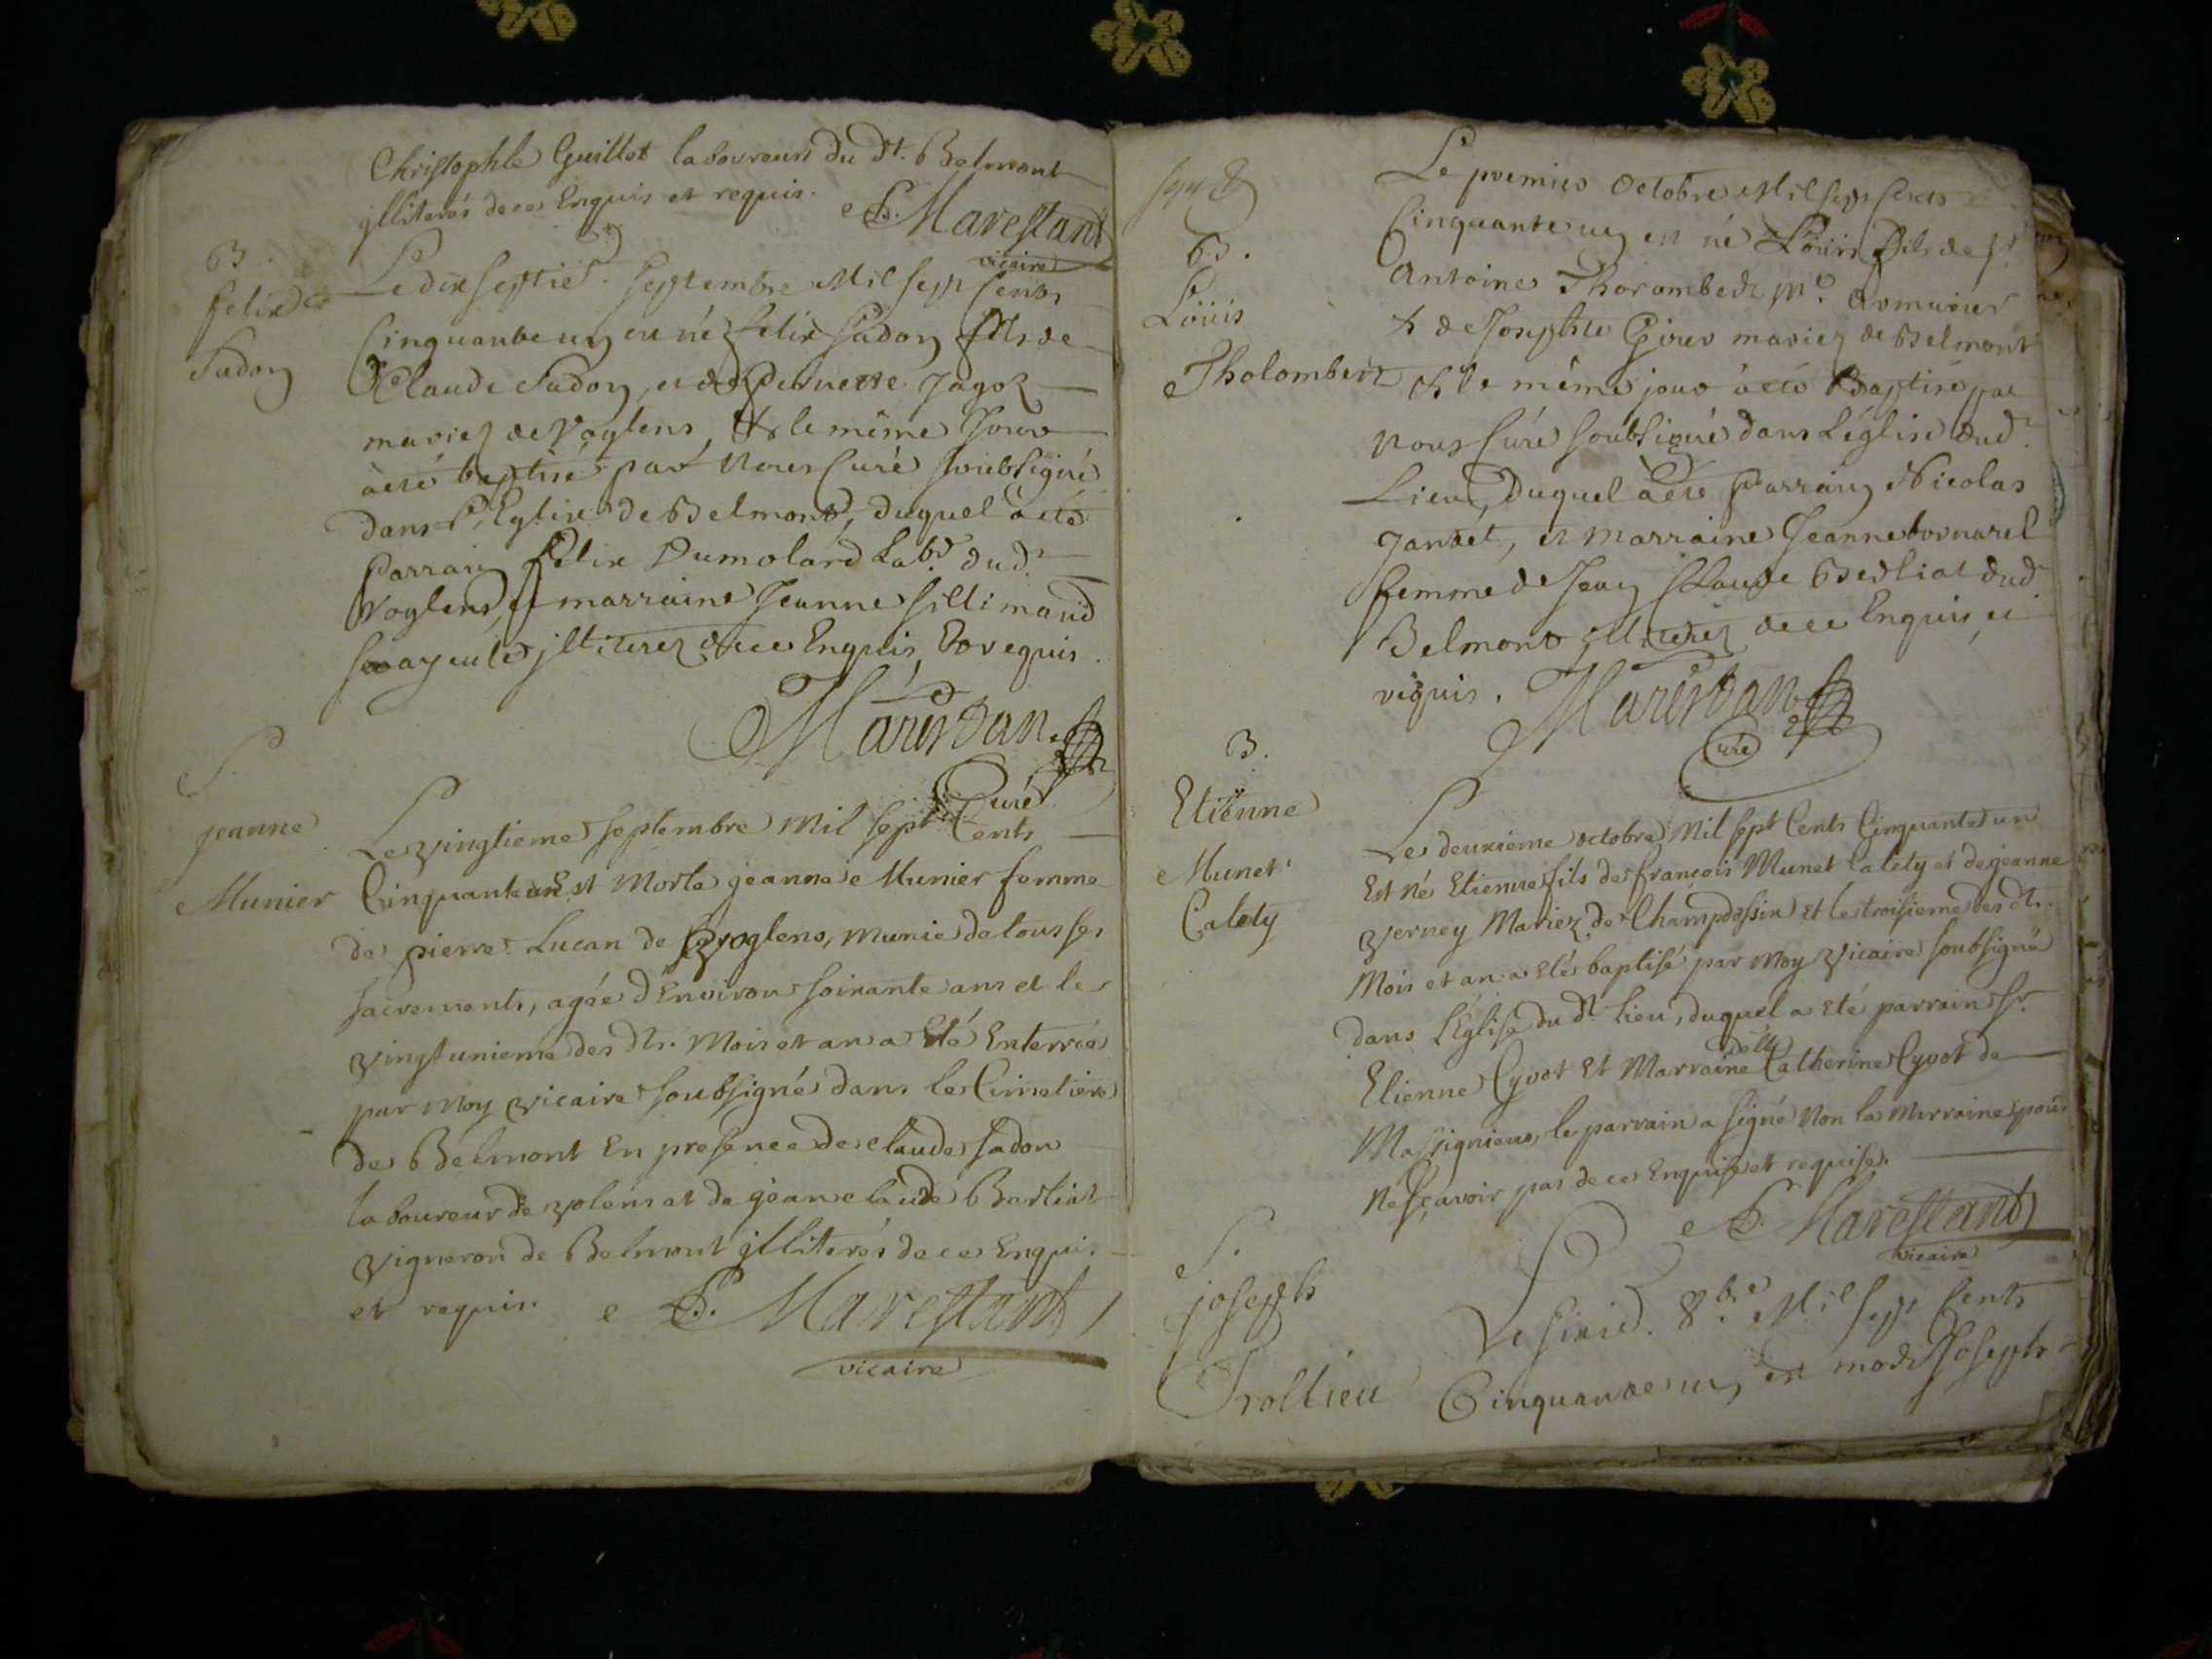 Christophle Guillot laboureur du dt. Belmont
jlliterés de ce Enquis et requis.
P. Marestand
vicaire
B.
felix
Sadon
Le dix septie. septembre Mil sept Cents
Cinquante un est né felix Sadon fils de
Claude Sadon, et de Pernette Jagoz
mariez de Voglens, & le même Jour
à été baptisé par Nous Curé soubsigné
dans l'Eglise de Belmont, duquel à été
Parrain felix Dumolard Labr. dud.
Voglens, et marraine Jeanne sillimand
sa ayeule jlliterez de ce Enquis, & requis.
Marestan
Curé
S.
jeanne
Munier
Le vingtieme septembre Mil sept Cents
Cinquante un Est Morte jeanne Munier femme
de pierre Lucan de voglens, Munie de tous ses
sacrements, agée d'Environ soixante ans et le
vingt unieme des dts. Mois et an a Eté Enterrée
par Moy vicaire soubsigné dans le Cimetiere
de Belmont En presence de claude sadon
laboureur de volens et de jean claude Berliat
vigneron de Belmont jlliterés de ce Enquis
et requis. P. Marestand
vicaire
B.
Louis
Tholombert
Le premier Octobre Mil sept Cents
Cinquante un est né Louis fils de sr
Antoine Thorombert me. Armurier
& de Josephte Girer mariez de Belmont
& le même jour à été Baptisé par
Nous Curé soubsigné dans L'église dud.
Lieu, Duquel à été Parrain Nicolas
Janret, et Marraine Jeanne bornarel
femme de Jean Claude Berliat dud.
Belmont jlliterez de ce Enquis et
requis. Marestan
Curé
B.
Etienne
Munet
Catety
Le deuxieme octobre Mil sept Cents Cinquante un
Est Né Etienne fils de françois Munet Catety et de jeanne
verney Mariez de Champdossin Et le troisieme des dts.
Mois et an a Eté baptisé par Moy vicaire soubsigné
dans L'Eglise du dt. lieu, duquel a Eté parrain sr.
Etienne Cyvot Et Marraine delle Catherine Cyvot de
Massignieu, le parrain a signé Non la Marraine pour
Ne sçavoir pas de ce Enquise et requise.
P. Marestand
vicaire
S.
joseph
Trollieu
Le sixie. 8.bre Mil sept Cents
Cinquante un est mort Joseph